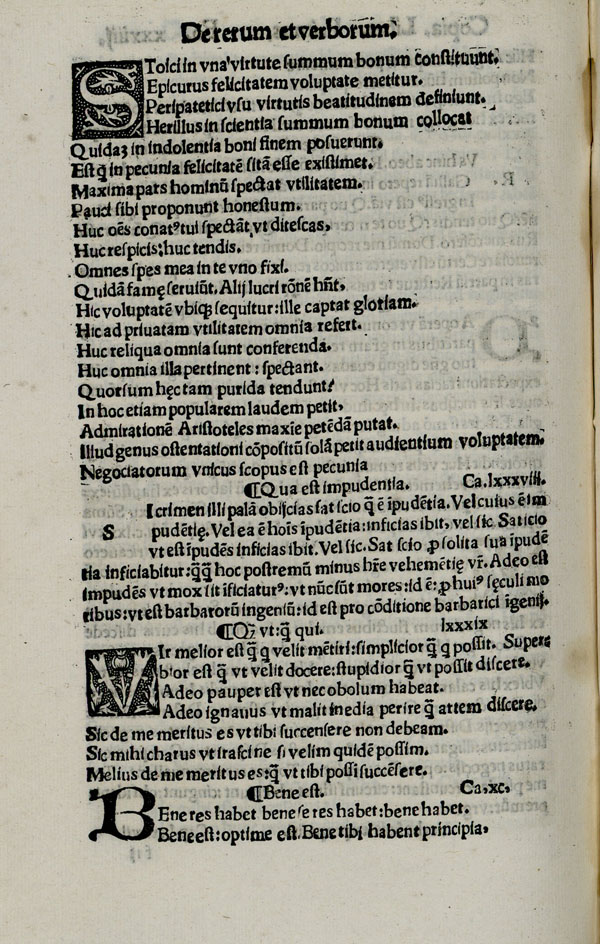 De rerum et verborum.
STolci in vna' virtute summum bonum constituunt.
Epicurus felicitatem voluptate metitur.
Peripatetici vsu virtutis beatitudinem definiunt.
Herillus in scientia summum bonum collocat
Quidaʒ in indolentia boni finem posuerunt.
Est q̃ in pecunia felicitatẽ sitã esse existimet.
Maxima pars hominũ spectat vtilitatem.
Pauci sibi proponunt honestum.
Huc oẽs conatꝰ tui spectãt, vt ditescas,
Huc respicis: huc tendis.
Omnes spes mea in te vno fixi.
Quidã famę seruiũt. Alij lucri rõnẽ hñt.
Hic voluptatẽ vbiqꝫ sequitur: ille captat glotiam.
Hic ad priuatam vtilitatem omnia refert.
Huc reliqua omnia sunt conferenda.
Huc omnia illa pertinent: spectant.
Quorsum hęc tam putida tendunt?
In hoc etiam popularem laudem petit,
Admirationẽ Aristoteles maxĩe petẽdã putat.
Illud genus ostentationi cõpositũ solã petit audientium voluptatem.
Negociatorum vnicus scopus est pecunia
¶Qua est impudentia. Ca.lxxxviii.
SI crimen illi palã obijcias sat scio q̃ ẽ ĩpudẽtia. Vel cuius ẽ im
pudẽtię. Vel ea ẽ hoĩs ĩpudẽtia: inficias ibit, vel sic. Sat scio
vt est ĩpudẽs inficias ibit. Vel sic. Sat scio ꝓ solita sua ĩpudẽ
tia inficiabitur: q̃q̃ hoc postremũ minus hr̃e vehemẽtię vr̃. Adeo est
impudẽs vt mox sit ĩficiaturꝰ: vt nũc sũt mores: id ẽ: ꝓ huiꝰ sęculi mo
ribus: vt est barbarorũ ingeniũ: id est pro cõditione barbarici ĩgenij.
¶Qꝫ vt: q̃ qui. lxxxix
VIr melior est q̃ q velit mẽtiri: simplicior q̃ q possit. Super
bior est q̃ vt velit docere: stupidior q̃ vt possit discere.
Adeo pauper est vt nec obolum habeat.
Adeo ignauus vt malit inedia perire q̃ artem discere.
Sic de me meritus es vt tibi succensere non debeam.
Sic mihi charus vt irasci ne si velim quidẽ possim.
Melius de me meritus es: q̃ vt tibi possi succẽsere.
¶Bene est. Ca,xc,
BEne res habet bene se res habet: bene habet.
Bene est: optime est. Bene tibi habent principia,